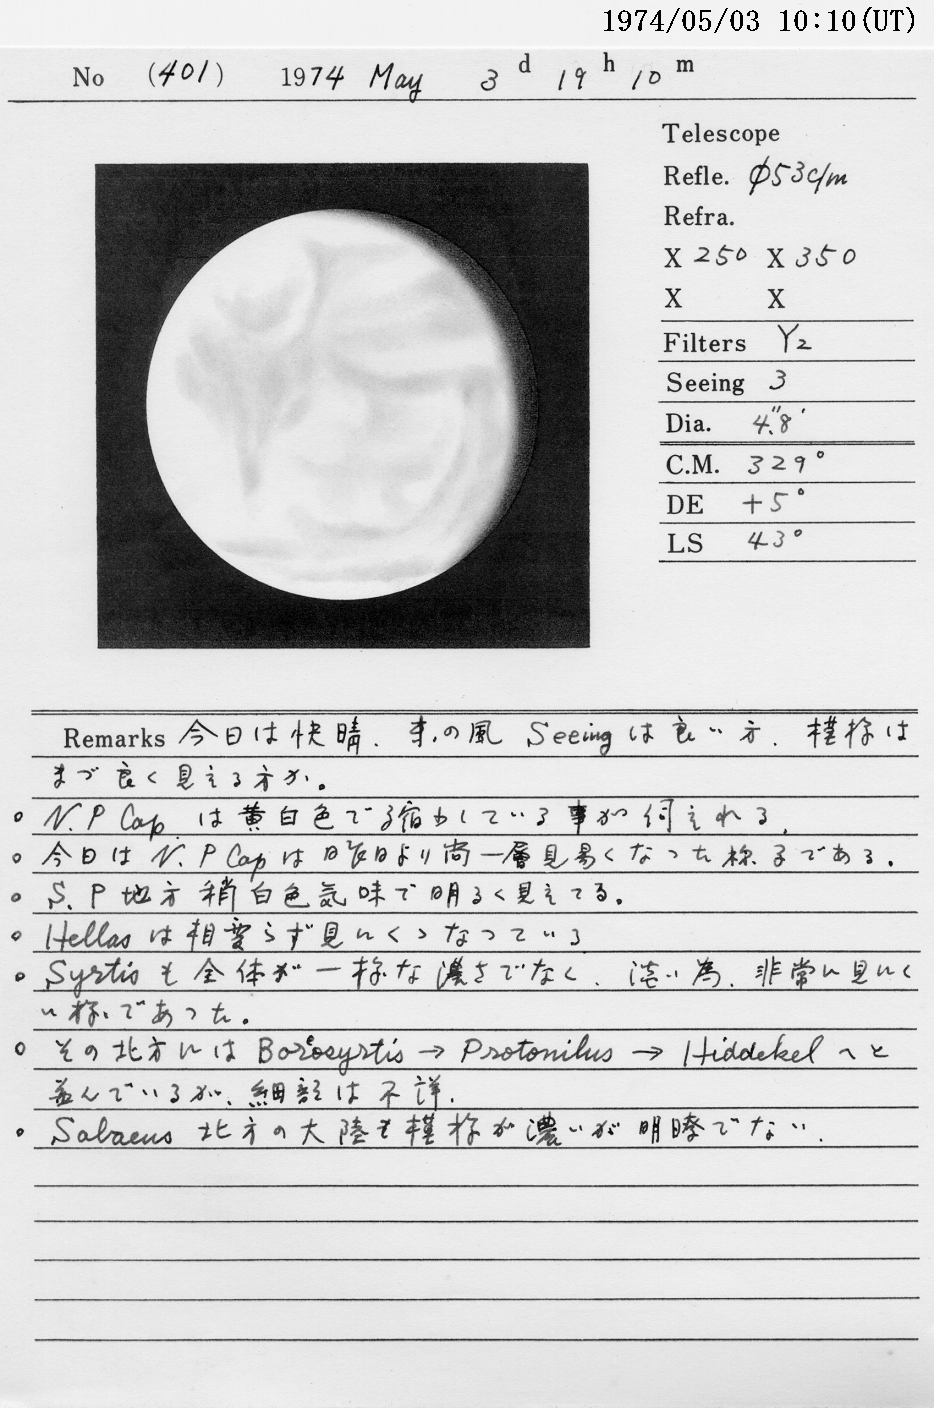 1974/05/03 10:10(UT)
No (401) 1974 May 3 d 19 h 10 m
Telescope
Refle. φ53c/m
Refra.
X 250 X 350
X X
Filters Y2
Seeing 3
Dia. 4."8
C.M. 329°
DE +5°
LS 43°
Remarks 今日は快晴、の風 Seeingは良い方、模様は
まづ良く見える方か。
○ N.P Cap は黄白色で縮少している事が伺えれる、
○ 今日は N.P Capは昨日より尚一層見易くなった様子である。
○ S.P地方稍白色気味で明るく見えてる。
○ Hellasは相変らず見にくくなっている
○ Syrtisも全体が一様な濃さでなく、淡い為、非常に見にく
い様であった。
○ その北方には Boreosyrtis → Protonilus → Hiddekel へと
並んでいるが、細部は不詳.
○ Sabaeus 北方の大陸も模様が濃いが明瞭でない.